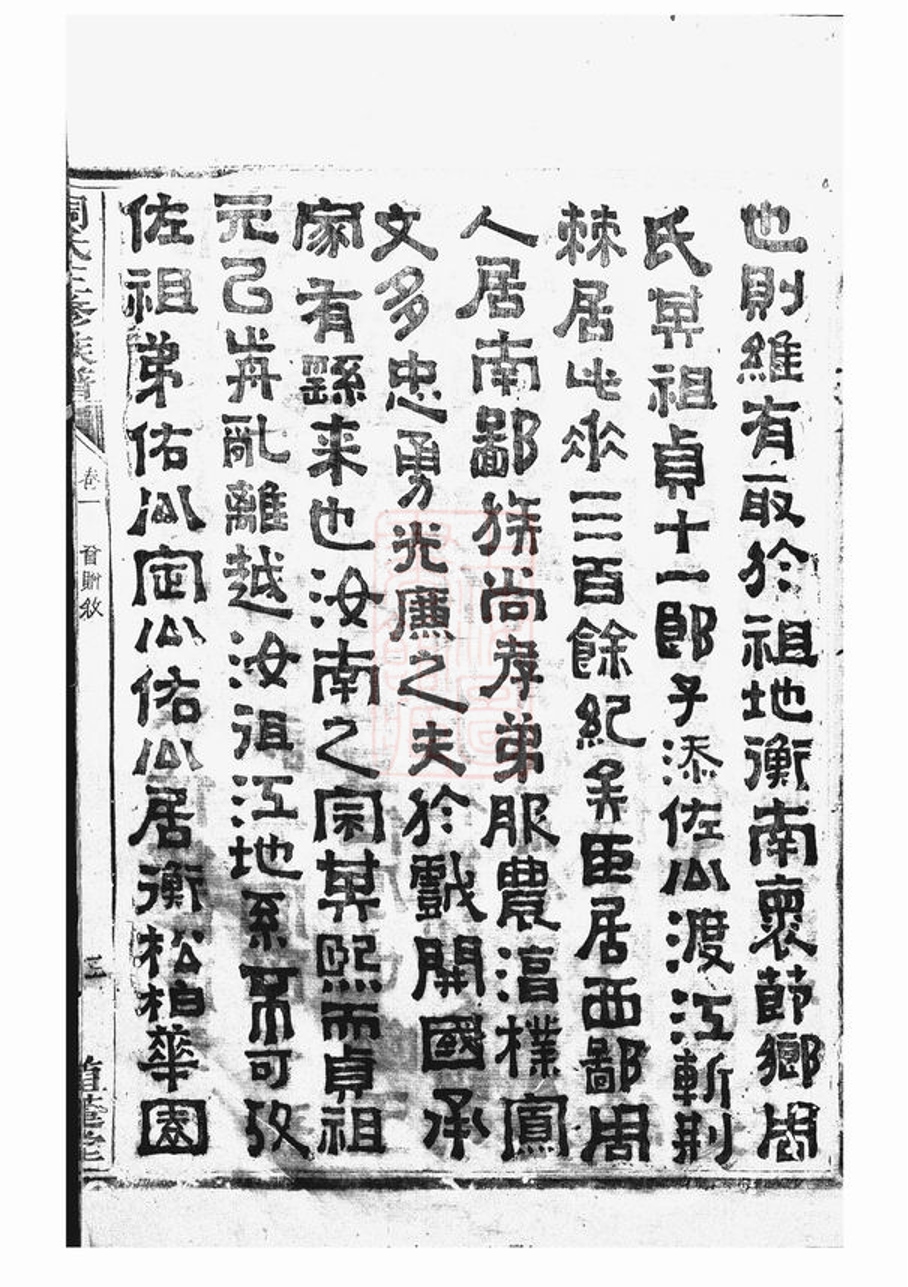 也則維有最於祖地衡南褱節鄉周
氏其祖貞十一郎子添佐公渡江斬荆
棘居此垂三百餘紀矣臣居西鄙周
人居南鄙猶尚孝弟服農湻樸寪
文多忠勇光廉之夫於戲開國承
家有繇来也汝南之宗其熙而貞祖
元己再亂離越汝徂江地系不可攷
佐祖弟佑公定公佑公居衡松柏華園
周氏三修族譜
卷一
首贈敘
三